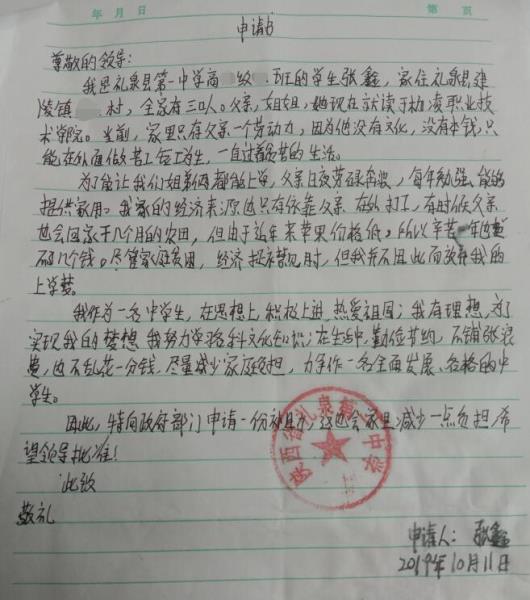 年 月 日 第 页
申请书
尊敬的领导:
我是礼泉县第一中学高 级 班的学生张鑫,家住礼泉县建
陵镇 村,全家有三口人。父亲,姐姐,她现在就读于杨凌职业技
术学院。当前,家里只有父亲一个劳动力,因为他没有文化,没有本钱,只
能在外面做苦工短工为生,一直过着贫苦的生活。
为了能让我们姐弟俩都能上学,父亲日夜劳碌奔波,每年勉强能够
提供家用。我家的经济来源也只有依靠父亲在外打工,有时候父亲
也会回家干几个月的农田,但由于近年来苹果价格低,所以辛苦一年也
不几个钱。尽管家庭贫困,经济拮据,但我并不因此而放弃我的
上学梦。
我作为一名中学生,在思想上,积极上进,热爱祖国;我有理想,为了
实现我的梦想,我努力学习各科文化知识;在生活中,勤俭节约,不铺张浪
费,也不乱花一分钱,尽量减少家庭负担,力争作一名全面发展、合格的中
学生。
因此,特向政府部门申请一份补助,这也会家里减少一点负担,希
望领导批准!
此致
敬礼
陕西省礼泉县 中学
申请人: 张鑫
2019年10月11日